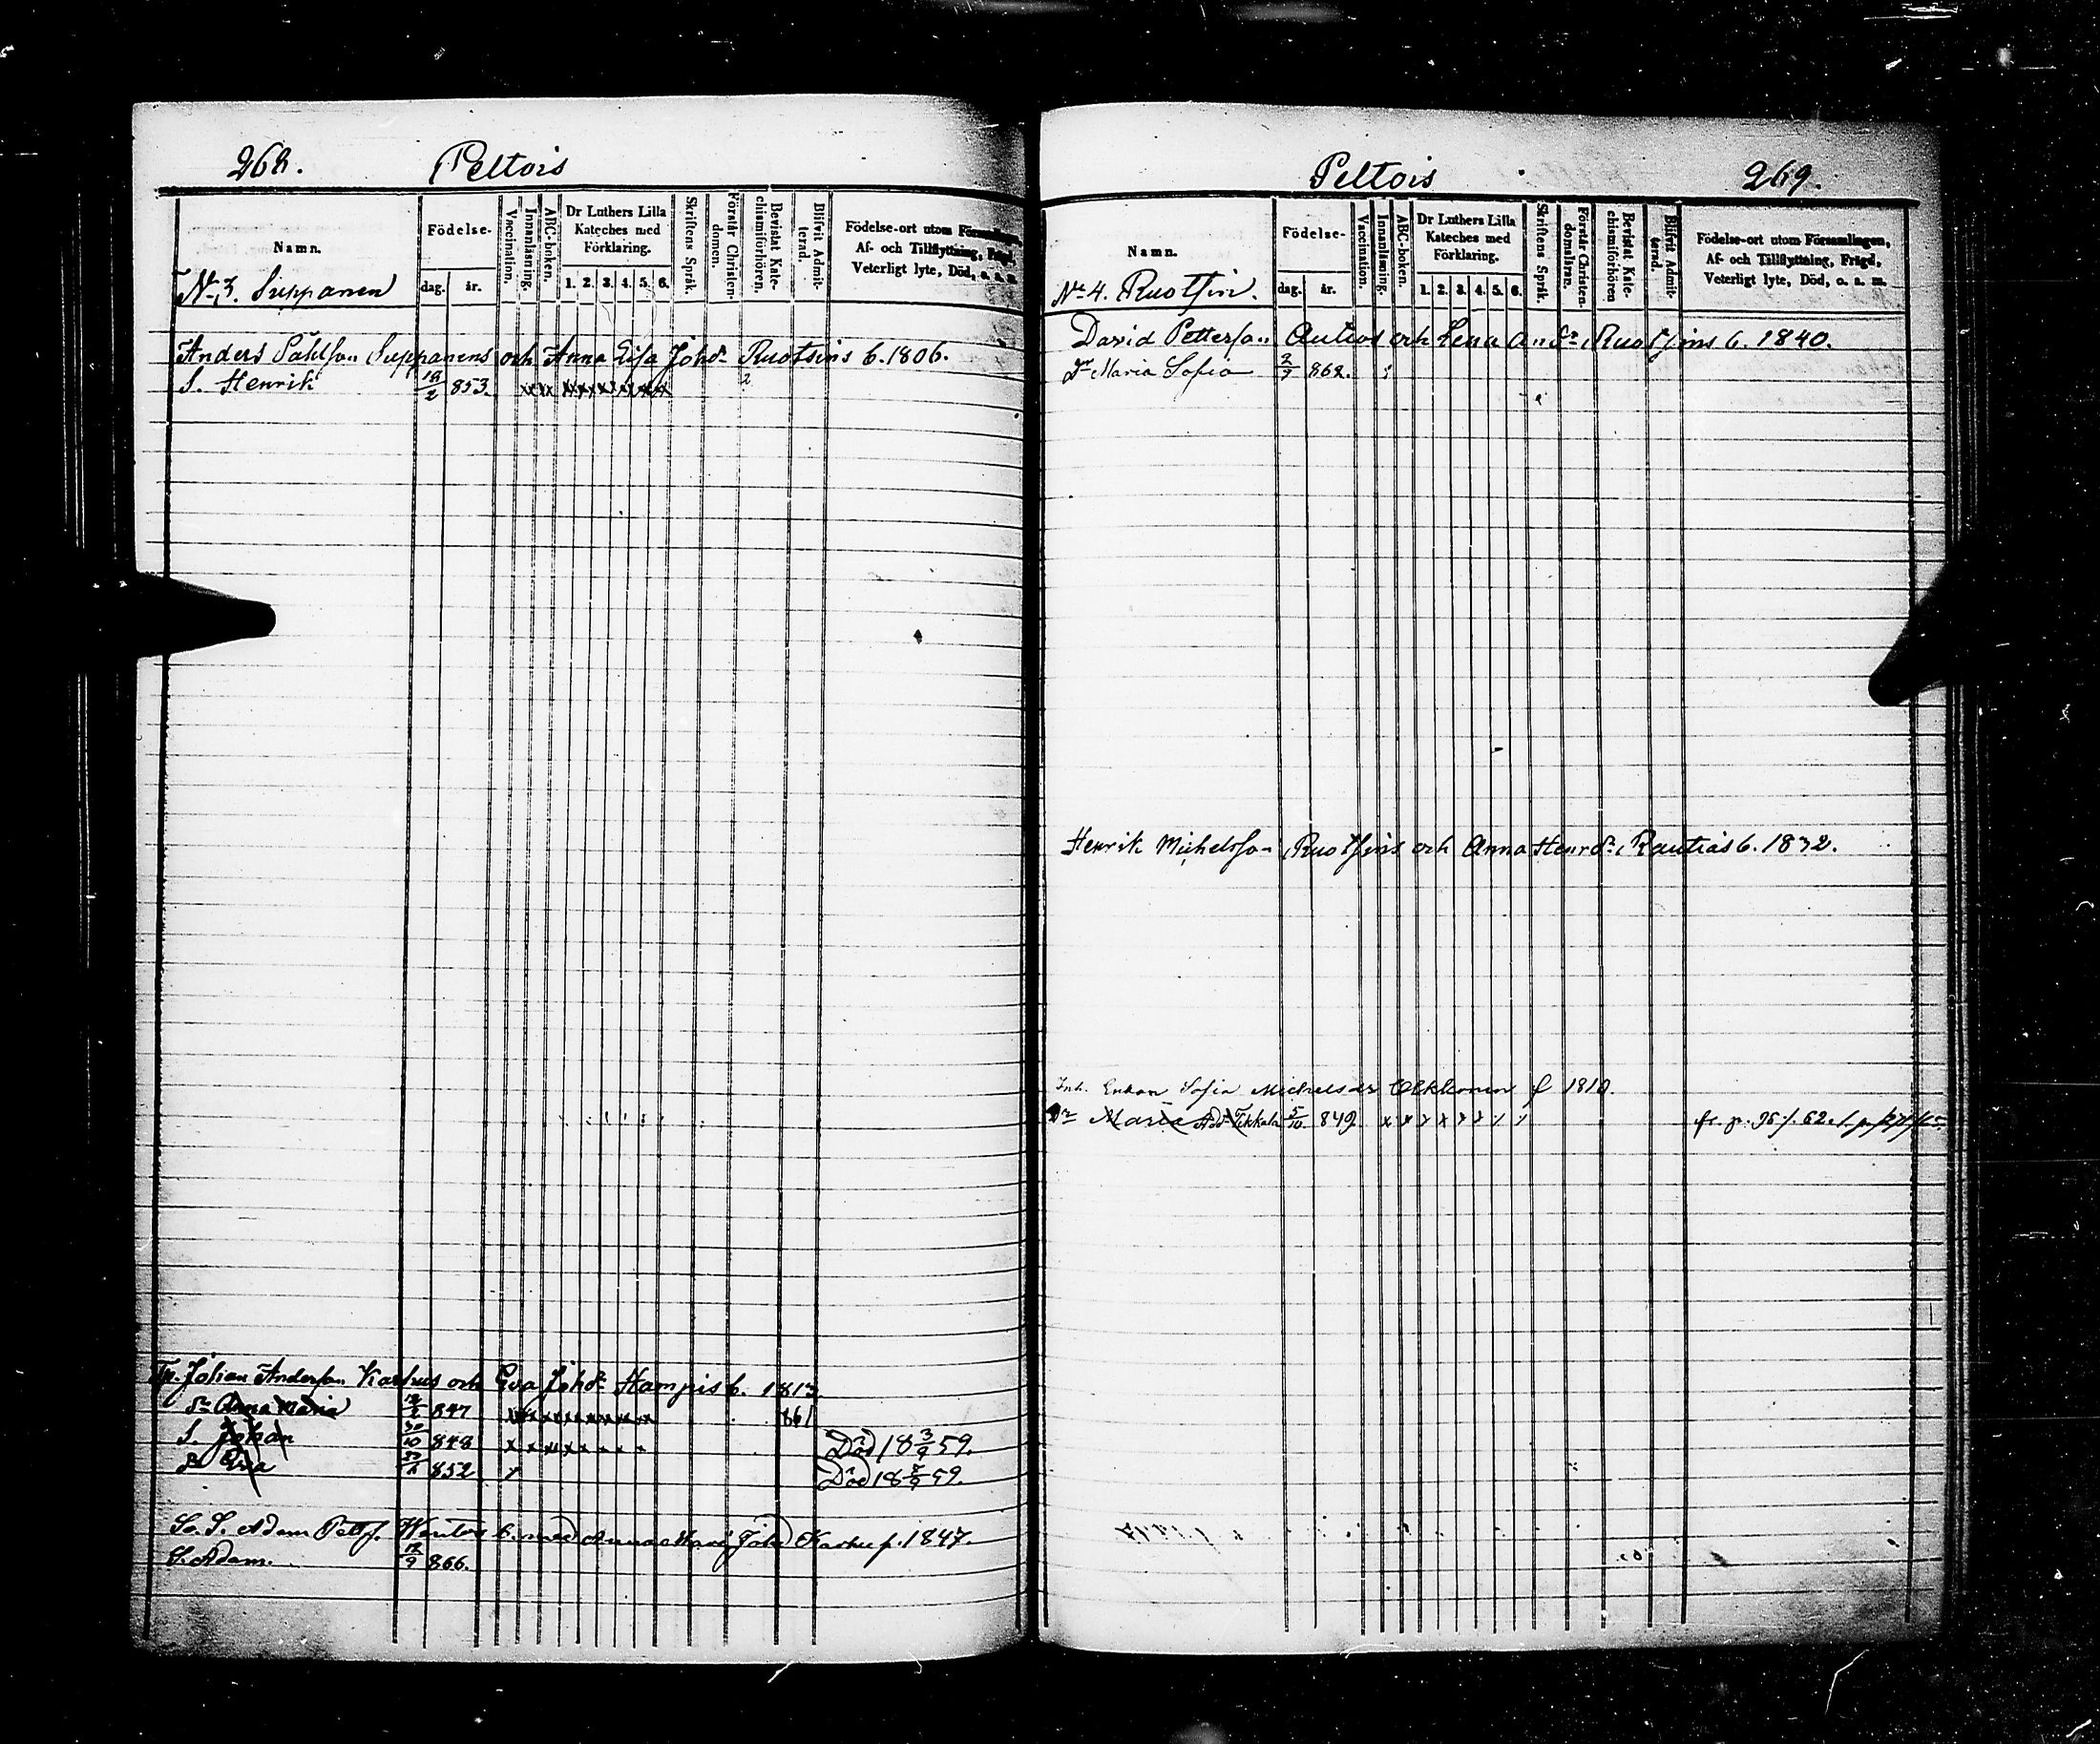 268. Peltois
Namn.
Födelse-
dag. år.
Vaccination.
Innanläsning.
ABC-boken.
Dr Luthers Lilla Kateches med Förklaring.
1. 2. 3. 4. 5. 6.
Skriftens Språk.
Förstår Christen-domen.
Bevistat Kate-chismiförhören.
Blifvit Admit-terad.
Födelse-ort utom Församlingen,
Af- och Tillflyttning, Frägd,
Veterligt lyte, Död, o. s. m.
No 3. Suppanen
Anders Pahlsson Suppanens och Anna Lisa Johdr Ruotsins b. 1806.
S. Henrik 18/2 853. x x x x x x x x x x 2
Tp. Johan Andersson Karhus och Eva Johdr Hampis b. 1813
Dr Anna Maria 847 861
S. Johan 30/10 848 Död 18 3/9 59.
Dr Eva 852 Död 18 59.
S. Adam Petts. b. med Anna Maria Johd Karhu f. 1847.
S. Adam. 12/9 866.
Peltois 269.
Namn.
Födelse-
dag. år.
Vaccination.
Innanläsning.
ABC-boken.
Dr Luthers Lilla Kateches med Förklaring.
1. 2. 3. 4. 5. 6.
Skriftens Språk.
Förstår Christen-domsläran.
Bevistat Kate-chismiförhören
Blifvit Admit-terad.
Födelse-ort utom Församlingen,
Af- och Tillflyttning, Frägd,
Veterligt lyte, Död, o. s. m.
No 4. Ruotsin.
David Pettersson Autios och Lena And. dr Ruotsins b. 1840.
Dr Maria Sofia 2/7 862.
Henrik Michelsson Ruotsins och Anna Henr. dr Rautias b. 1832.
Inh. Enkan Sofia Michelsdr Olkkonen f 1810.
Dr Maria Add. Tikkala 5/10 849 x x x x x x x x fr. p. 96